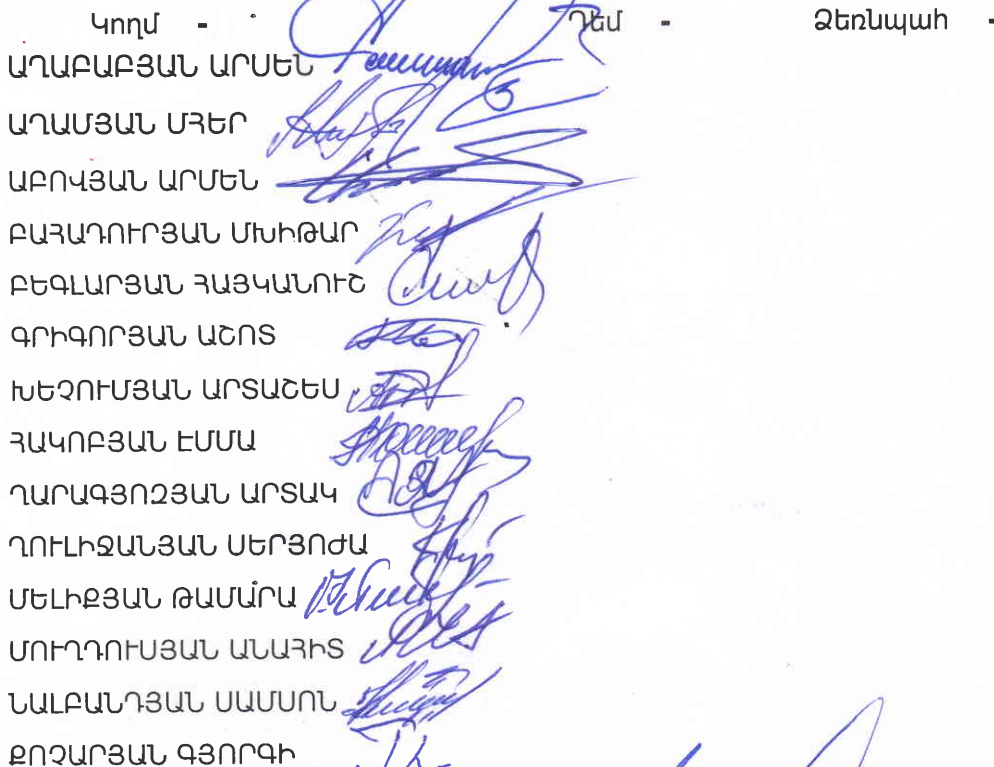 Կողմ - Դեմ - Ձեռնպահ -
ԱՂԱԲԱԲՅԱՆ ԱՐՍԵՆ
ԱՂԱՄՅԱՆ ՄՀԵՐ
ԱԲՈՎՅԱՆ ԱՐՄԵՆ
ԲԱՀԱԴՈՒՐՅԱՆ ՄԽԻԹԱՐ
ԲԵԳԼԱՐՅԱՆ ՀԱՅԿԱՆՈՒՇ
ԳՐԻԳՈՐՅԱՆ ԱՇՈՏ
ԽԵՉՈՒՄՅԱՆ ԱՐՏԱՇԵՍ
ՀԱԿՈԲՅԱՆ ԷՄՄԱ
ՂԱՐԱԳՅՈԶՅԱՆ ԱՐՏԱԿ
ՂՈՒԼԻՋԱՆՅԱՆ ՍԵՐՅՈԺԱ
ՄԵԼԻՔՅԱՆ ԹԱՄԱՐԱ
ՄՈՒՂԴՈՒՍՅԱՆ ԱՆԱՀԻՏ
ՆԱԼԲԱՆԴՅԱՆ ՍԱՄՍՈՆ
ՔՈՉԱՐՅԱՆ ԳՅՈՐԳԻ